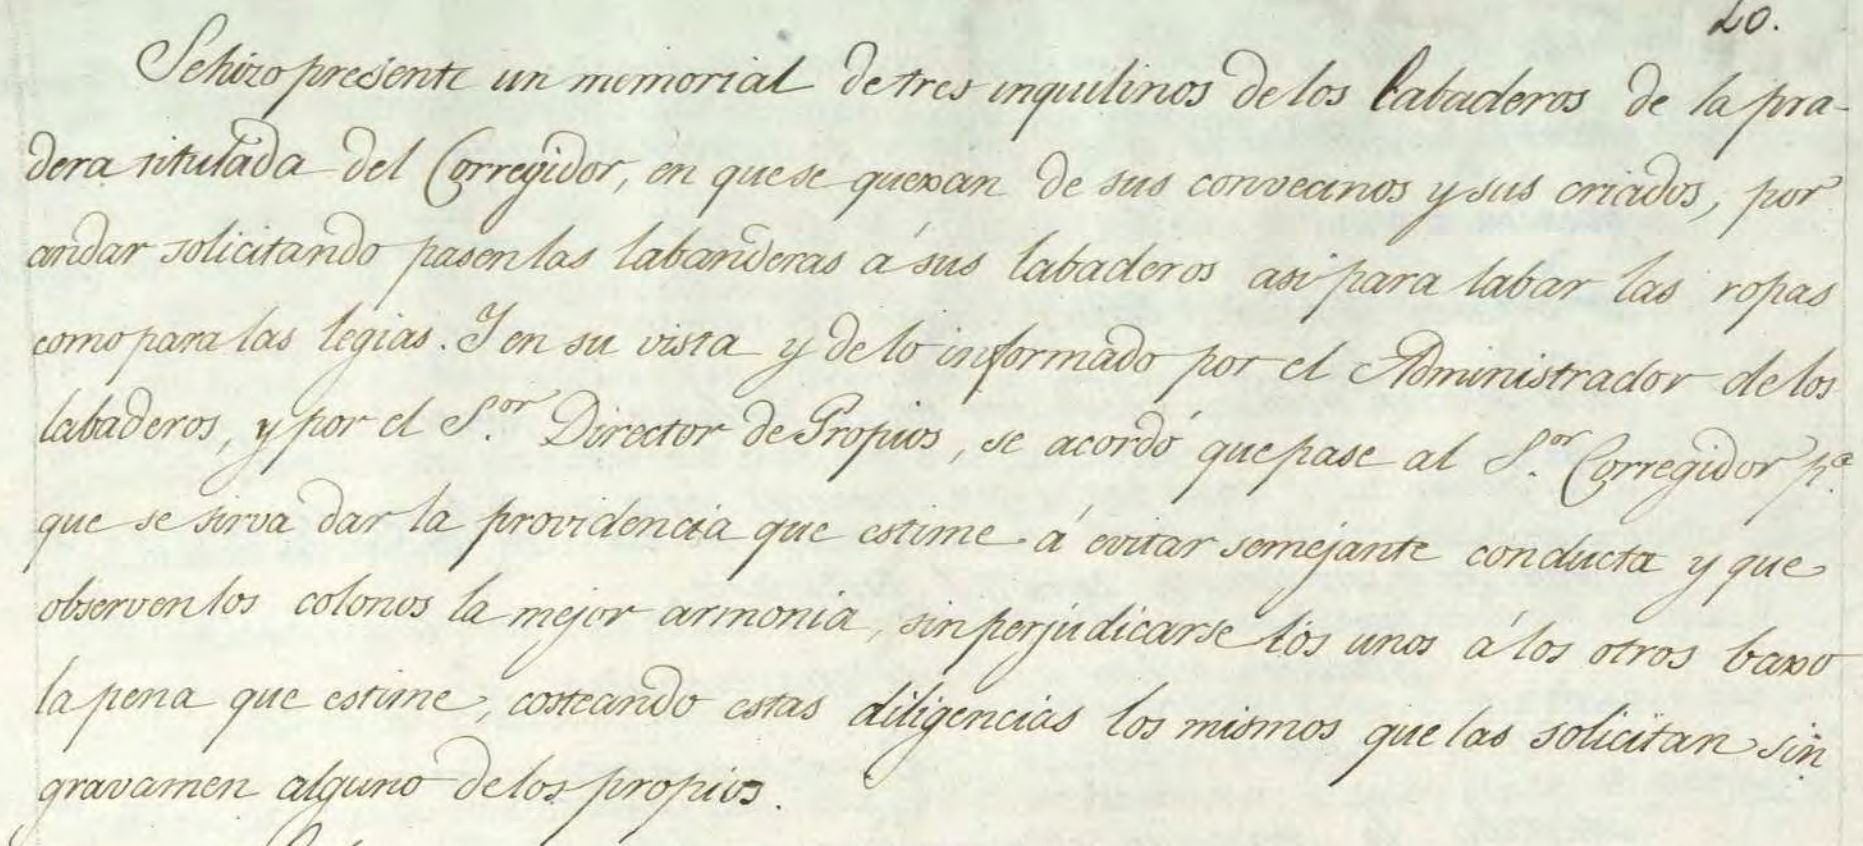 20.
Se hizo presente un memorial de tres inquilinos de los labaderos de la pra-
dera titulada del Corregidor, en que se quexan de sus convecinos y sus criados, por
andar solicitando pasen las labanderas á sus labaderos asi para labar las ropas
como para las legias. Y en su vista y de lo informado por el Administrador de los
labaderos, y por el S.or Director de Propios, se acordó que pase al S.or Corregidor p.a
que se sirva dar la providencia que estime á evitar semejante conducta y que
observen los colonos la mejor armonia, sin perjudicarse los unos á los otros baxo
la pena que estime, costeando estas diligencias los mismos que las solicitan sin
gravamen alguno de los propios.